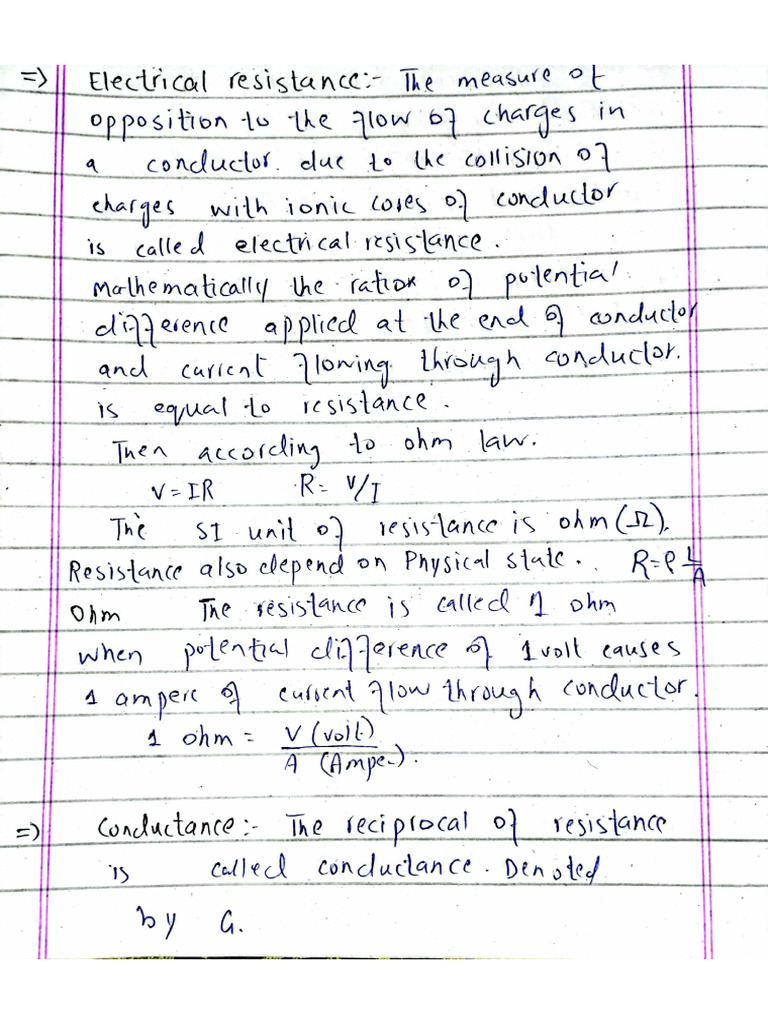 => Electrical resistance:- The measure of
opposition to the flow of charges in
a conductor. due to the collision of
charges with ionic cores of conductor
is called electrical resistance.
Mathematically the ration of potential
difference applied at the end of conductor
and current flowing through conductor.
is equal to resistance.
Then according to ohm law.
V=IR R= V/I
The SI unit of resistance is ohm (Ω).
Resistance also depend on Physical state. R=ρ L/A
Ohm The resistance is called 1 ohm
when potential difference of 1 volt causes
1 ampere of current flow through conductor.
1 ohm = V (volt)
A (Ampe.).
=> Conductance:- The reciprocal of resistance
is called conductance. Denoted
by G.